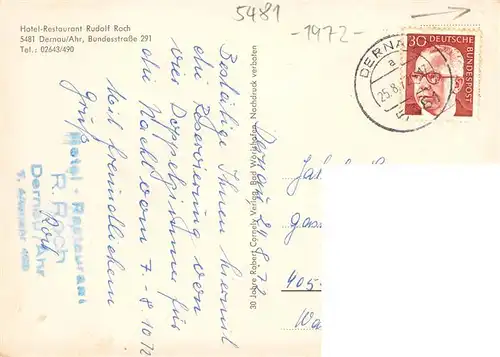 Hotel-Restaurant Rudolf Roch
5481 Dernau/Ahr, Bundesstraße 291
Tel.: 02643/490
5481
-1972-
30
DEUTSCHE
BUNDESPOST
DERNAU
a
25.8.
Bestätige Ihnen hiermit
die Reservierung von
vier Doppelzimmer für
die Nacht vom 7.-8.10.72
Mit freundlichem
Gruß
Roch
Hotel - Restaurant
R. Roch
Dernau/Ahr
30 Jahre Robert Cornely Verlag, Bad Wörishofen, Nachdruck verboten
Dernau, 24.8.72
405